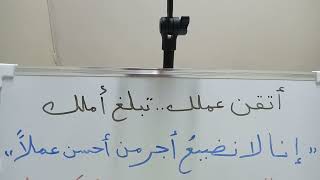 أتقن عملك.. تبلغ أملك
"إنا لا نضيعُ أجر من أحسن عملاً"